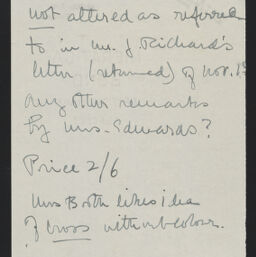 not altered as referred
to in Mr. J. Richards
letter (returned) of Nov. 13
Any other remarks
by Mrs. Edwards?
Price 2/6
Mrs Booth likes idea
of cross without colour.